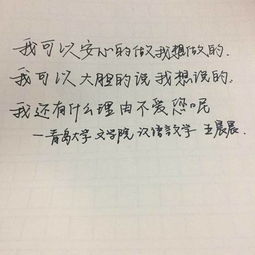 我可以安心的做我想做的.
我可以大胆的说我想说的.
我还有什么理由不爱您呢
—青岛大学 文学院 汉语言文学 王晨晨.